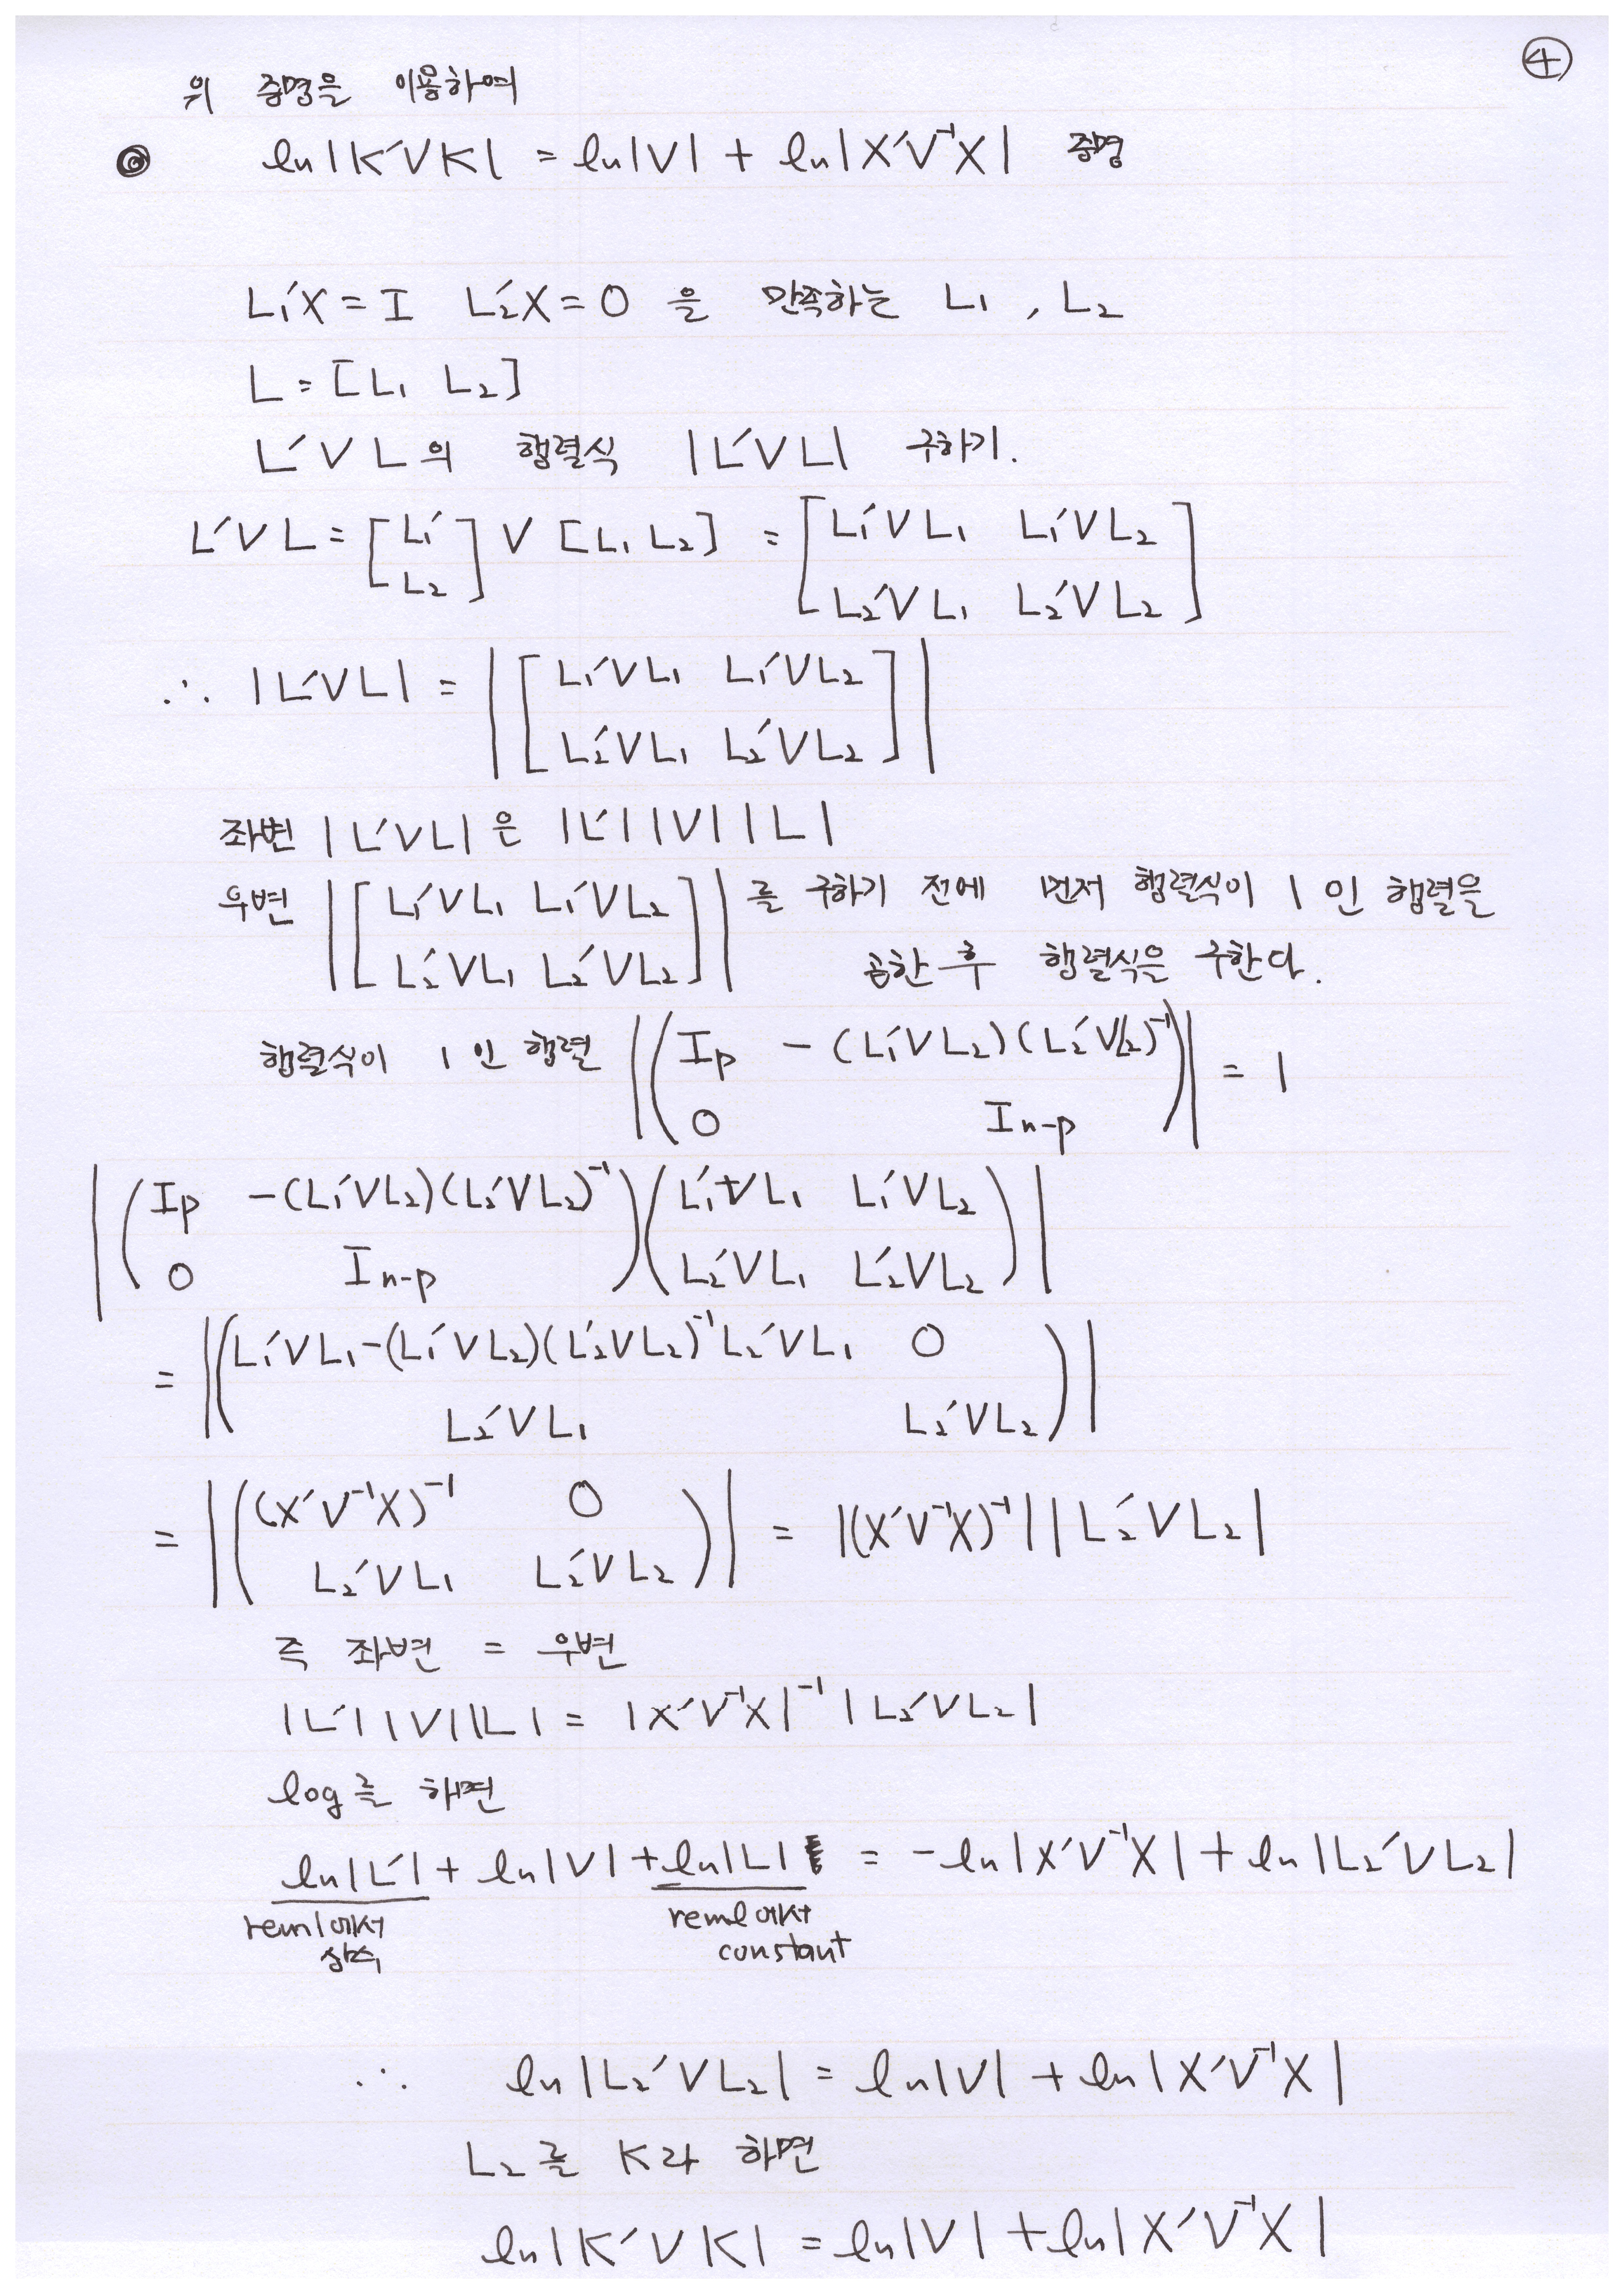 ④
위 증명을 이용하여
◎ ln|K′VK| = ln|V| + ln|X′V⁻¹X| 증명
L₁′X = I L₂′X = 0 을 만족하는 L₁ , L₂
L = [L₁ L₂]
L′VL의 행렬식 |L′VL| 구하기.
L′VL = [L₁′ ; L₂] V [L₁ L₂] = [L₁′VL₁ L₁′VL₂ ; L₂′VL₁ L₂′VL₂]
∴ |L′VL| = |[L₁′VL₁ L₁′VL₂ ; L₂′VL₁ L₂′VL₂]|
좌변 |L′VL| 은 |L′||V||L|
우변 |[L₁′VL₁ L₁′VL₂ ; L₂′VL₁ L₂′VL₂]| 를 구하기 전에 먼저 행렬식이 1 인 행렬을
곱한 후 행렬식을 구한다.
행렬식이 1 인 행렬 |(Ip -(L₁′VL₂)(L₂′VL₂)⁻¹ ; 0 In-p)| = 1
|(Ip -(L₁′VL₂)(L₂′VL₂)⁻¹ ; 0 In-p)(L₁′VL₁ L₁′VL₂ ; L₂′VL₁ L₂′VL₂)|
= |(L₁′VL₁-(L₁′VL₂)(L₂′VL₂)⁻¹L₂′VL₁ 0 ; L₂′VL₁ L₂′VL₂)|
= |((X′V⁻¹X)⁻¹ 0 ; L₂′VL₁ L₂′VL₂)| = |(X′V⁻¹X)⁻¹||L₂′VL₂|
즉 좌변 = 우변
|L′||V||L| = |X′V⁻¹X|⁻¹|L₂′VL₂|
log를 하면
ln|L′| + ln|V| + ln|L| = -ln|X′V⁻¹X| + ln|L₂′VL₂|
reml에서 reml에서
상수 constant
∴ ln|L₂′VL₂| = ln|V| + ln|X′V⁻¹X|
L₂를 K라 하면
ln|K′VK| = ln|V| + ln|X′V⁻¹X|